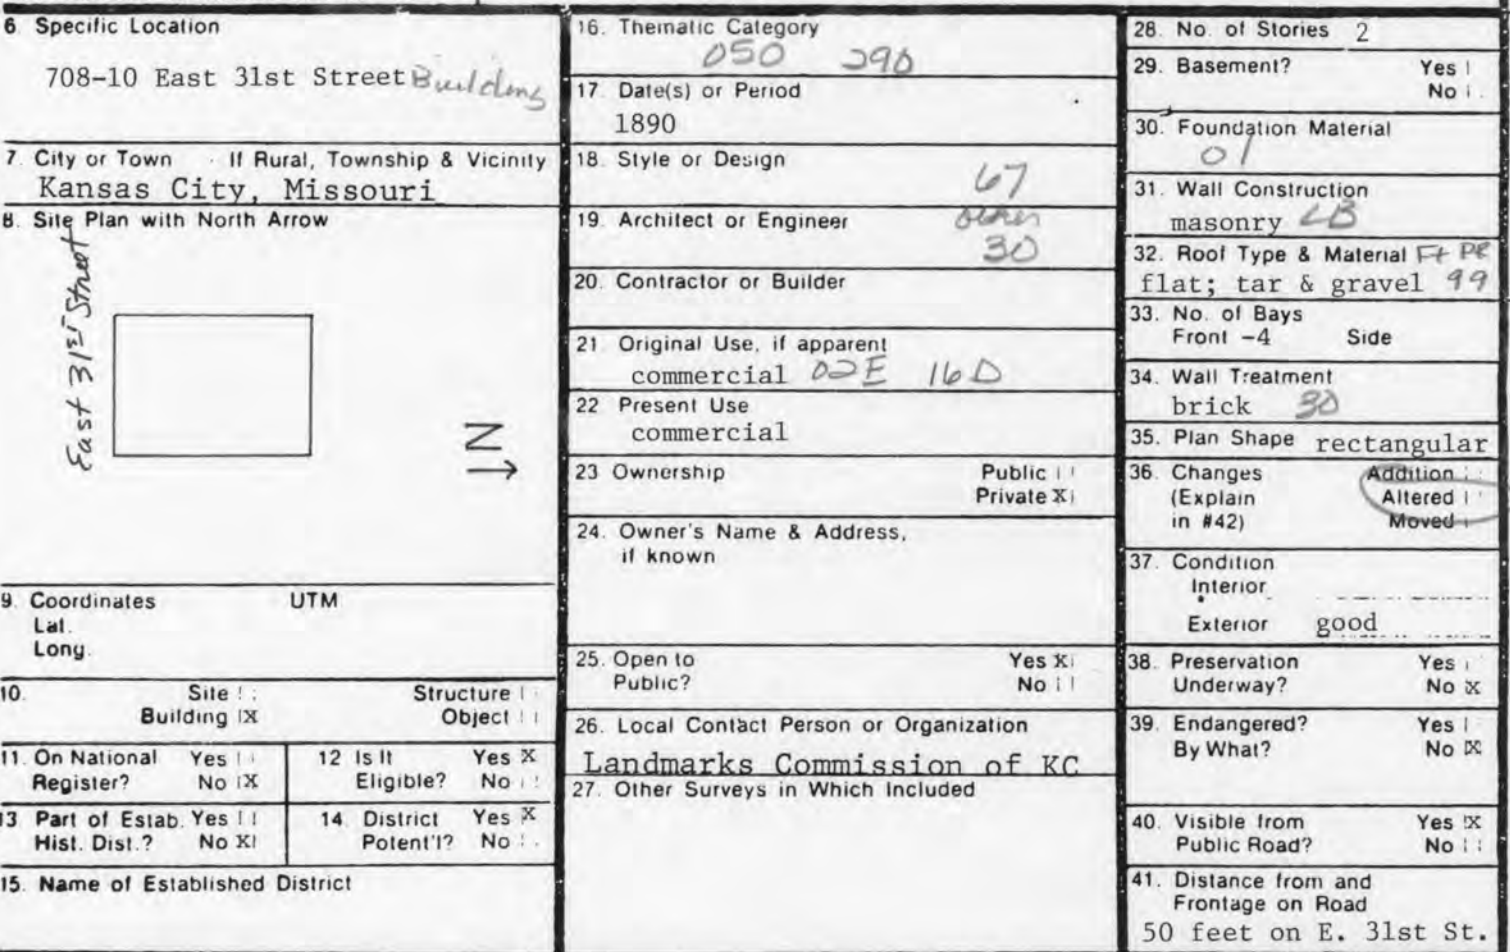 6 Specific Location
708-10 East 31st Street Building
7. City or Town If Rural, Township & Vicinity
Kansas City, Missouri
8. Site Plan with North Arrow
East 31st Street
N
9. Coordinates UTM
Lat.
Long.
10. Site Structure
Building X Object
11. On National Yes
Register? No X
12 Is It Yes X
Eligible? No
13 Part of Estab. Yes
Hist. Dist.? No X
14. District Yes X
Potent'l? No
15. Name of Established District
16. Thematic Category
050 290
17. Date(s) or Period
1890
18. Style or Design
67
19. Architect or Engineer other
30
20. Contractor or Builder
21 Original Use, if apparent
commercial 02E 16D
22 Present Use
commercial
23 Ownership Public
Private X
24. Owner's Name & Address,
if known
25. Open to Yes X
Public? No
26. Local Contact Person or Organization
Landmarks Commission of KC
27. Other Surveys in Which Included
28. No. of Stories 2
29. Basement? Yes
No
30. Foundation Material
01
31. Wall Construction
masonry LB
32. Roof Type & Material Ft PR
flat; tar & gravel 99
33. No. of Bays
Front -4 Side
34. Wall Treatment
brick 30
35. Plan Shape rectangular
36. Changes Addition
(Explain Altered
in #42) Moved
37. Condition
Interior
Exterior good
38. Preservation Yes
Underway? No X
39. Endangered? Yes
By What? No X
40. Visible from Yes X
Public Road? No
41. Distance from and
Frontage on Road
50 feet on E. 31st St.